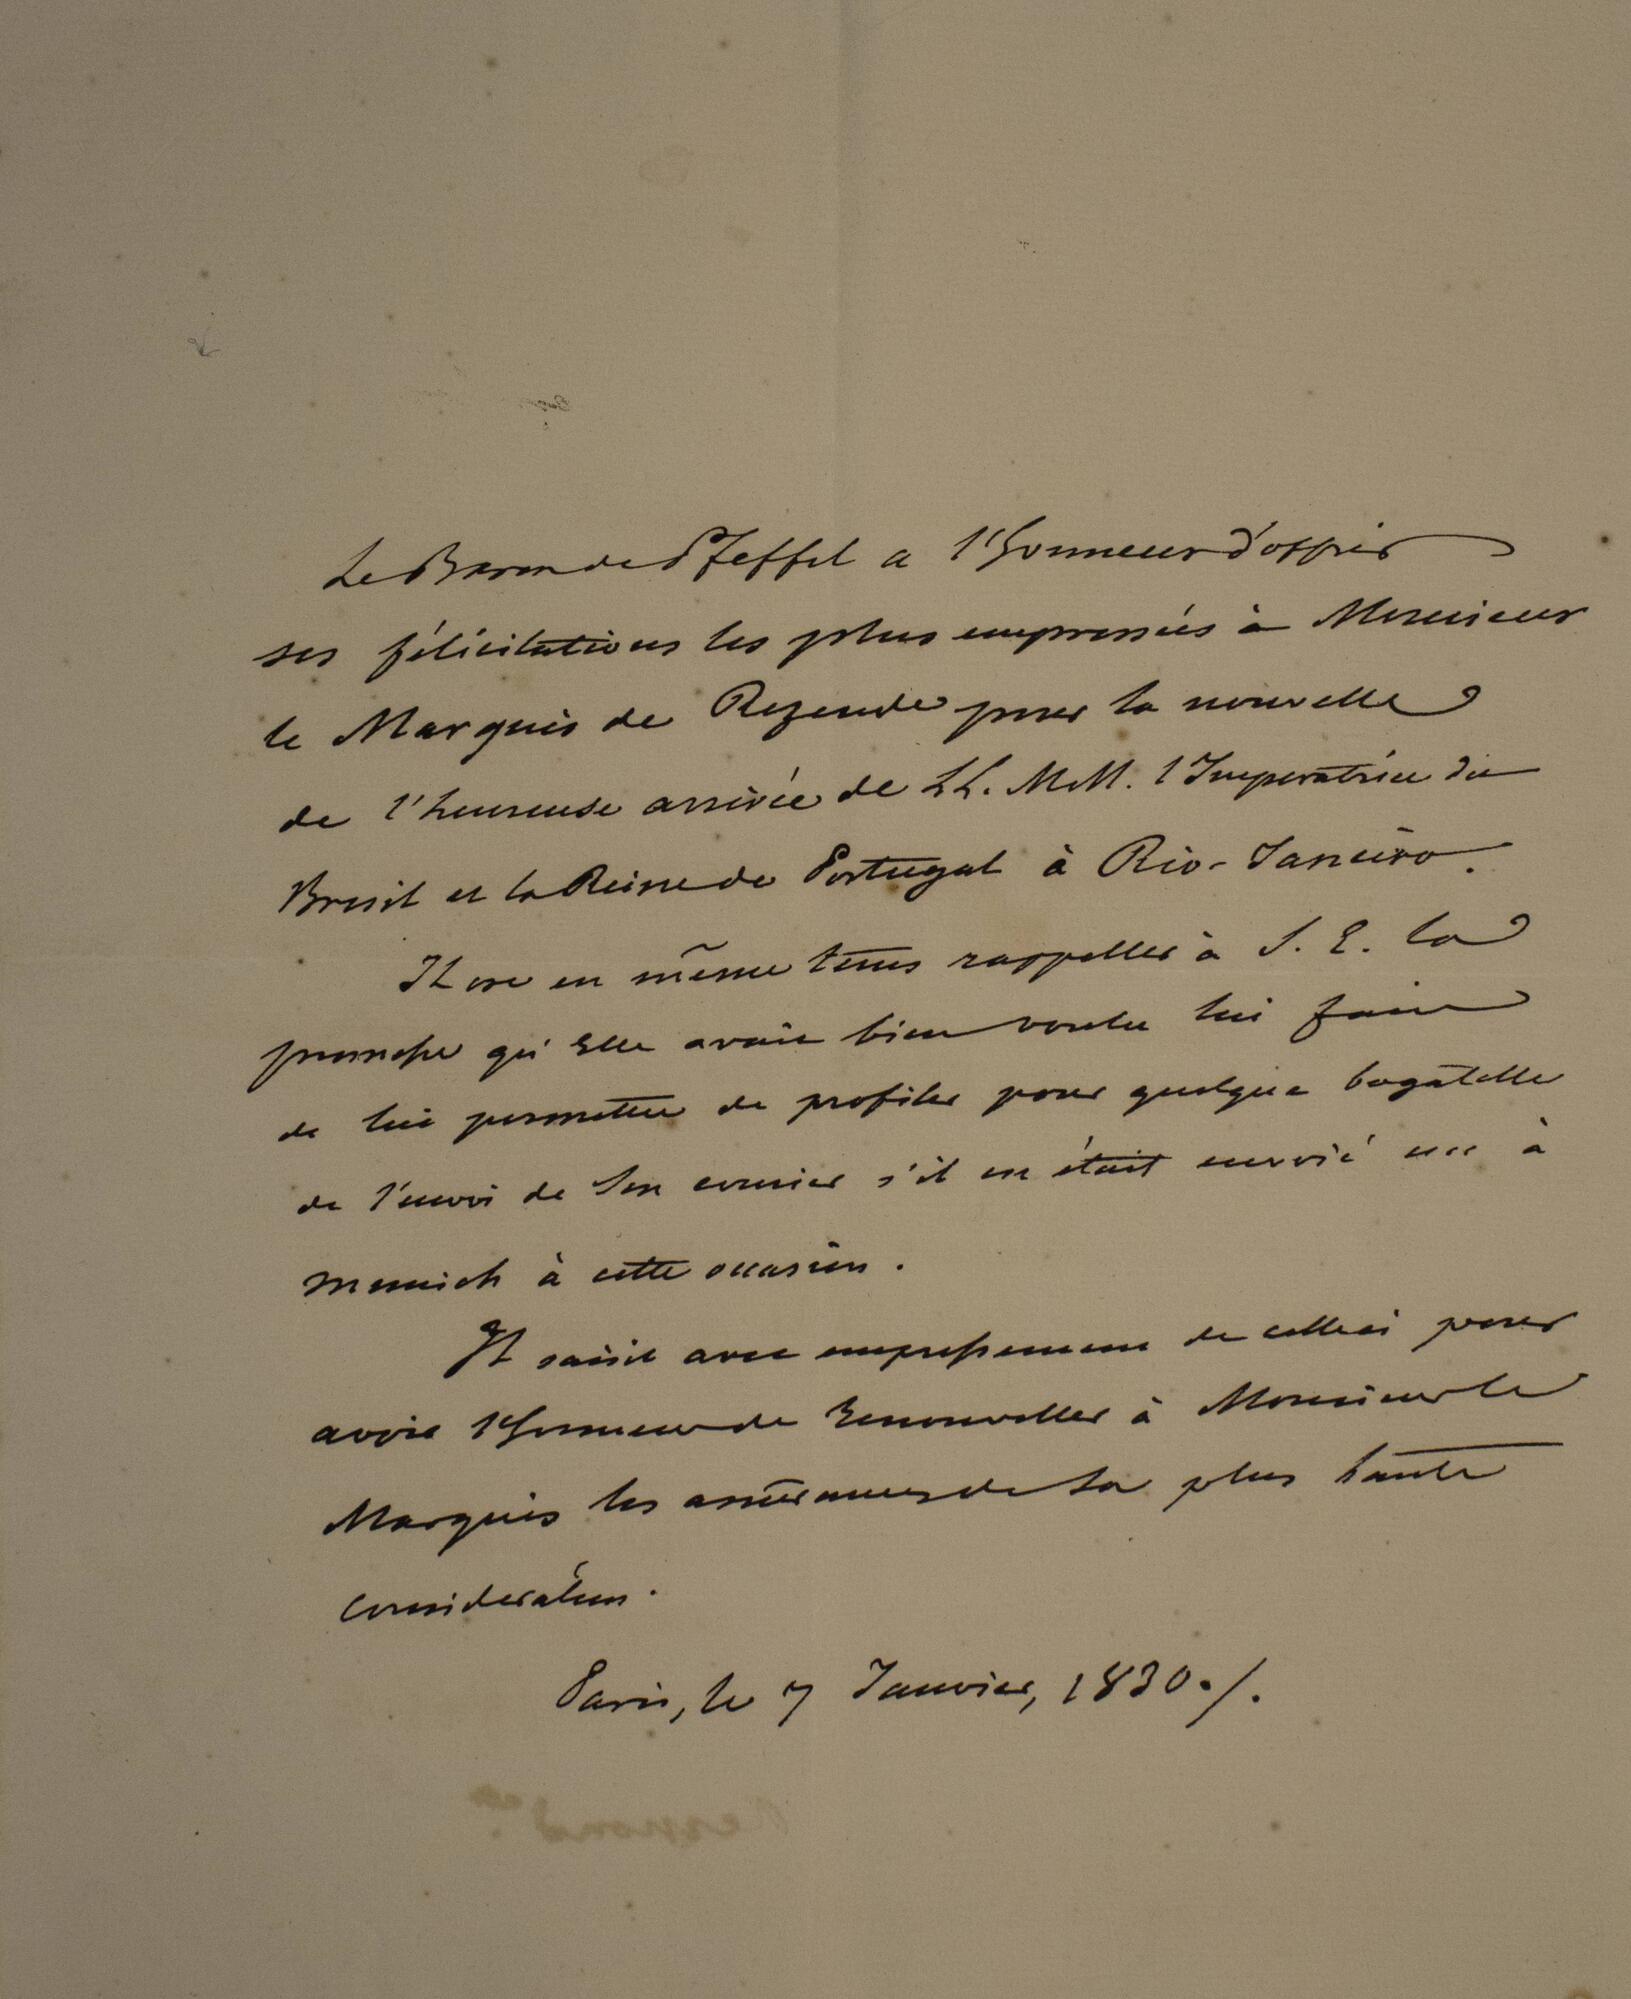 Le Baron de Pfeffel a l'honneur d'offrir
ses félicitations les plus empressées à Monsieur
le Marquis de Rezende pour la nouvelle
de l'heureuse arrivée de LL. MM. l'Imperatrice du
Bresil et la Reine de Portugal à Rio-Janeiro.
Il ose en même tems rappeller à S. E. la
promesse qu'Elle avait bien voulu lui faire
de lui permettre de profiter pour quelque bagatelle
de l'envoi de Son courier s'il en était envoié un à
Munich à cette occasion.
Il saisit avec empressement de celleci pour
avoir l'honneur de Renouveller à Monsieur le
Marquis les assurances de Sa plus haute
consideration.
Paris, le 7 Janvier, 1830./.